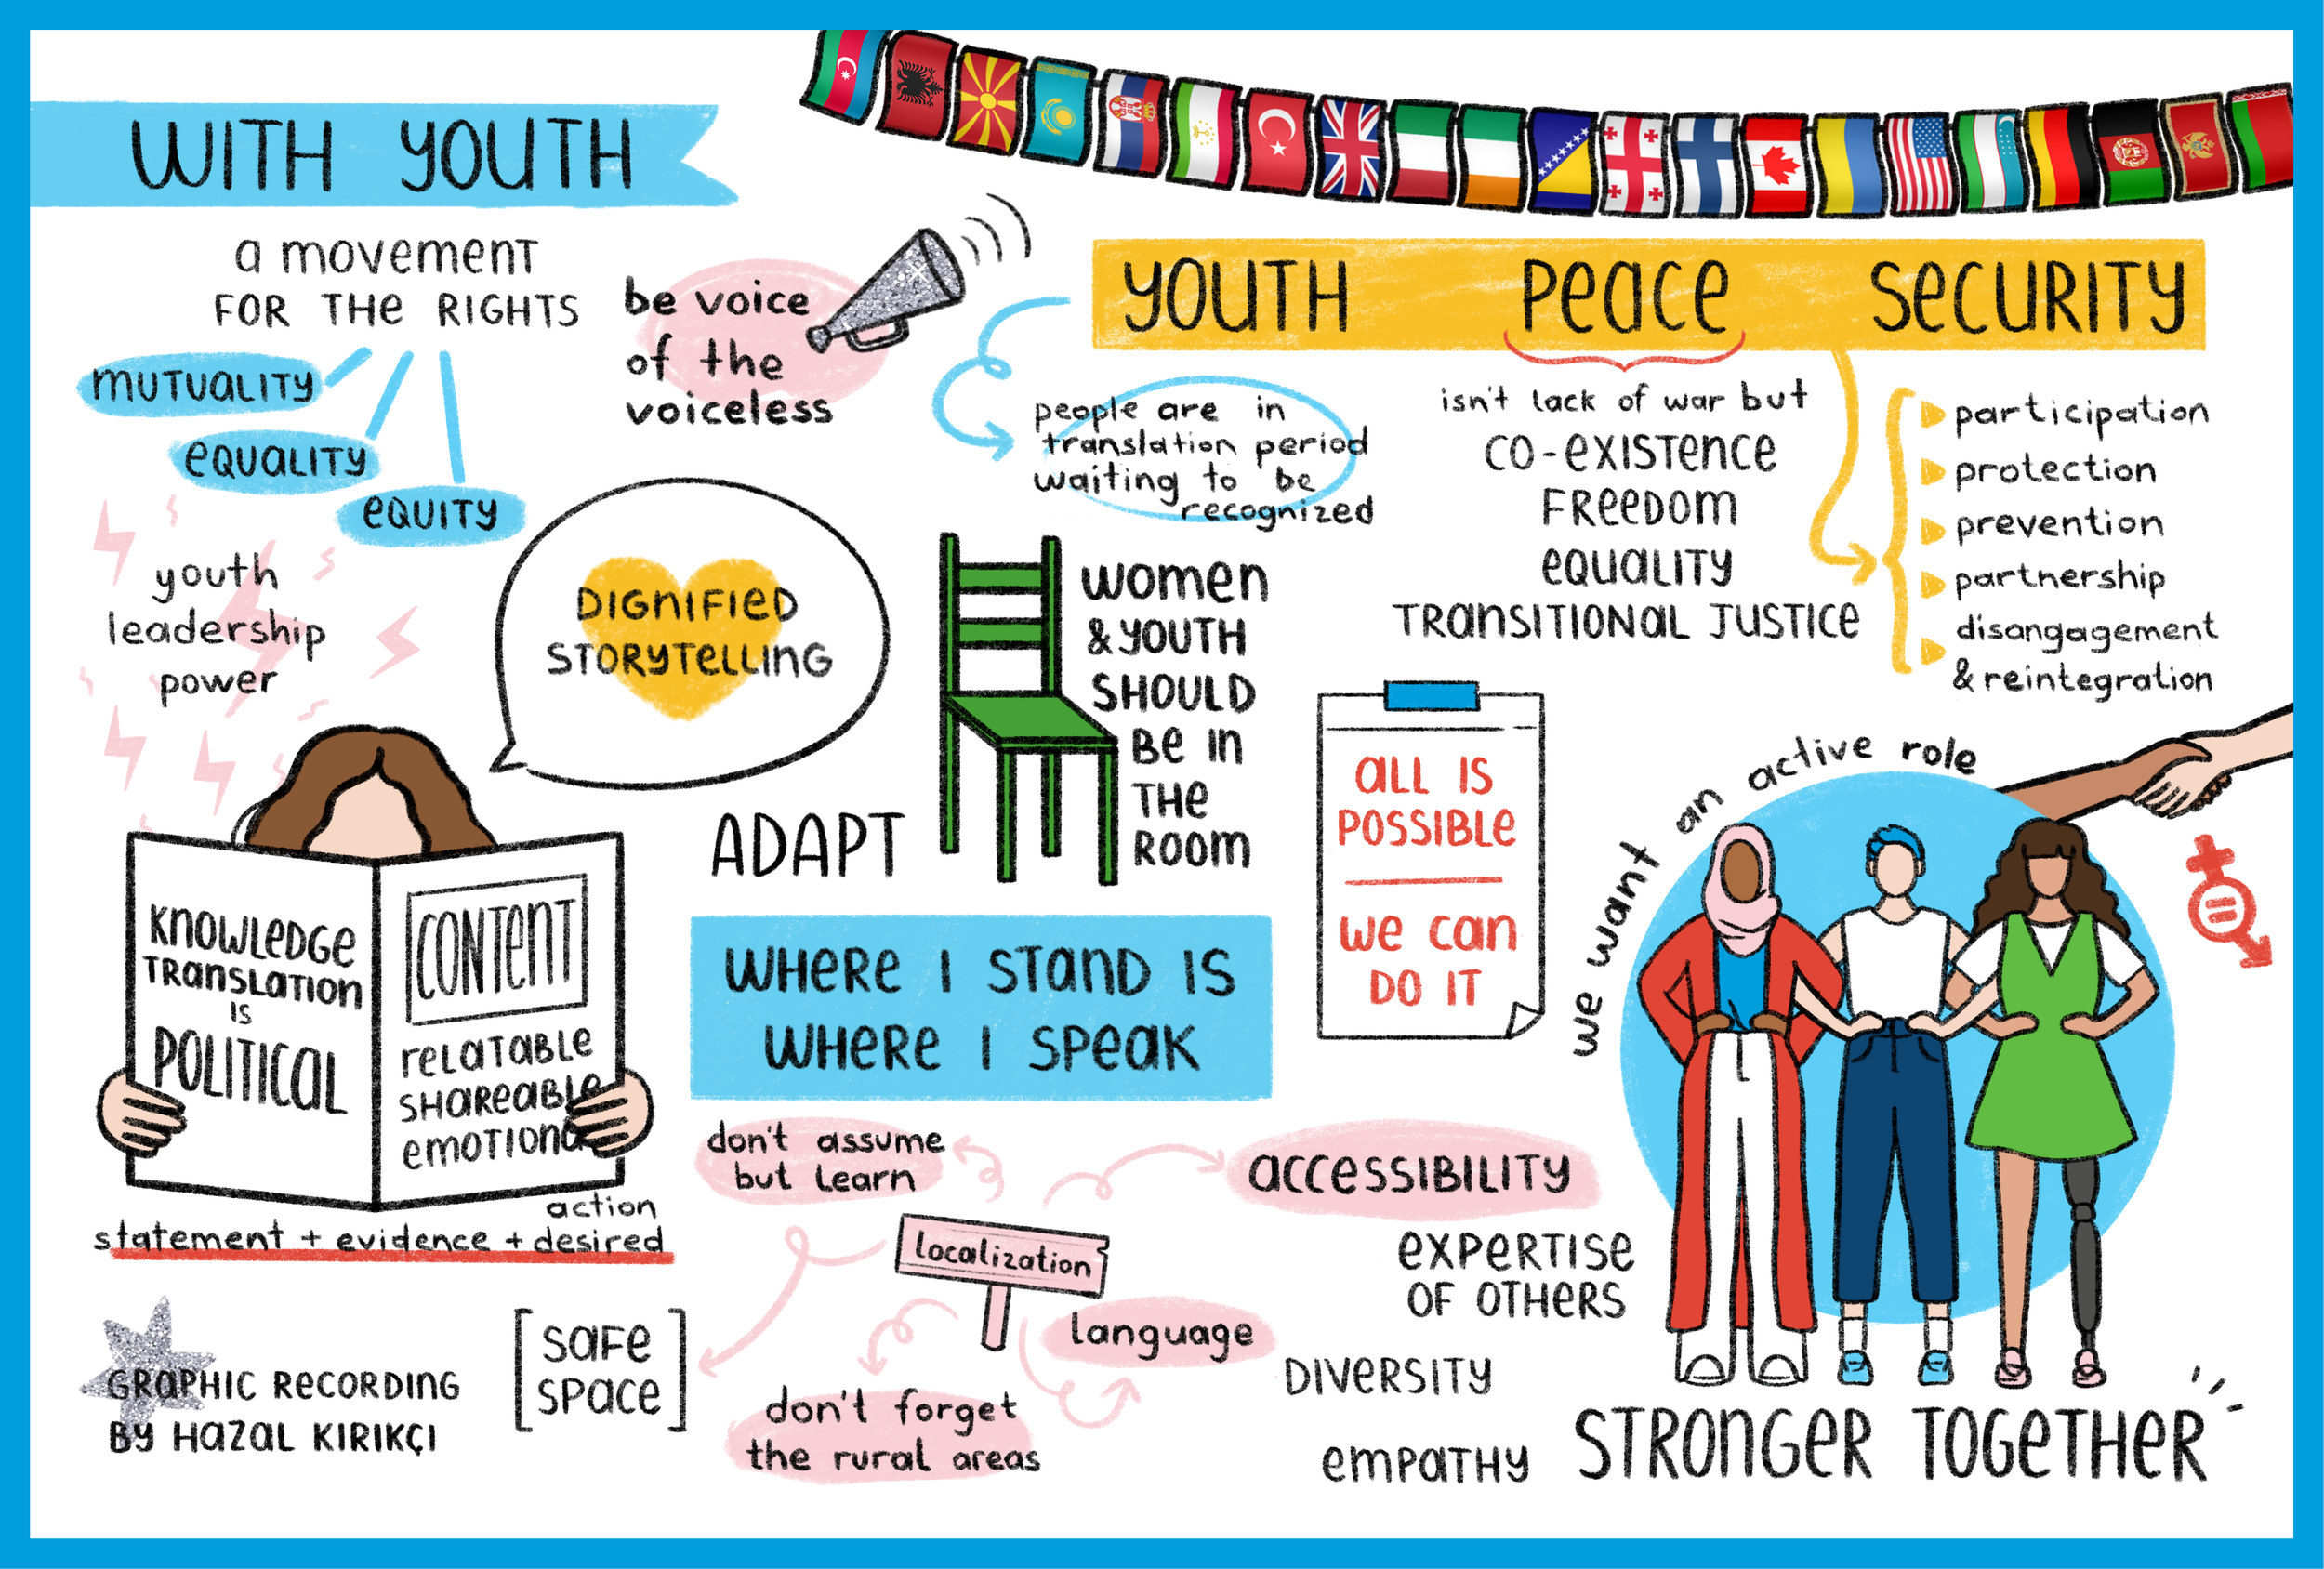 WITH YOUTH
a movement
FOR THE RIGHTS
MUTUALITY
EQUALITY
EQUITY
be voice
of the
voiceless
YOUTH PEACE SECURITY
people are in
translation period
waiting to be
recognized
isn't lack of war but
CO-EXISTENCE
FREEDOM
EQUALITY
TRANSITIONAL JUSTICE
participation
protection
prevention
partnership
disangagement
& reintegration
youth
leadership
power
DIGNIFIED
STORYTELLING
WOMEN
& YOUTH
SHOULD
BE IN
THE
ROOM
ADAPT
ALL IS
POSSIBLE
WE CAN
DO IT
we want an active role
KNOWLEDGE
TRANSLATION
IS
POLITICAL
CONTENT
RELATABLE
SHAREABLE
EMOTIONA
action
statement + evidence + desired
WHERE I STAND IS
WHERE I SPEAK
don't assume
but learn
localization
ACCESSIBILITY
language
don't forget
the rural areas
[SAFE
SPACE]
EXPERTISE
OF OTHERS
DIVERSITY
EMPATHY
STRONGER TOGETHER
GRAPHIC RECORDING
BY HAZAL KIRIKÇI